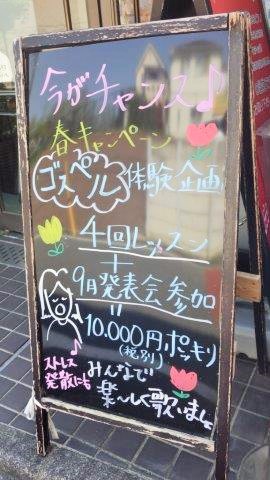 今がチャンス♪
春キャンペーン
ゴスペル体験企画
4回レッスン
+
9月発表会参加
=
10.000円ポッキリ
(税別)
ストレス
発散にも
みんなで
楽〜しく歌いましょ